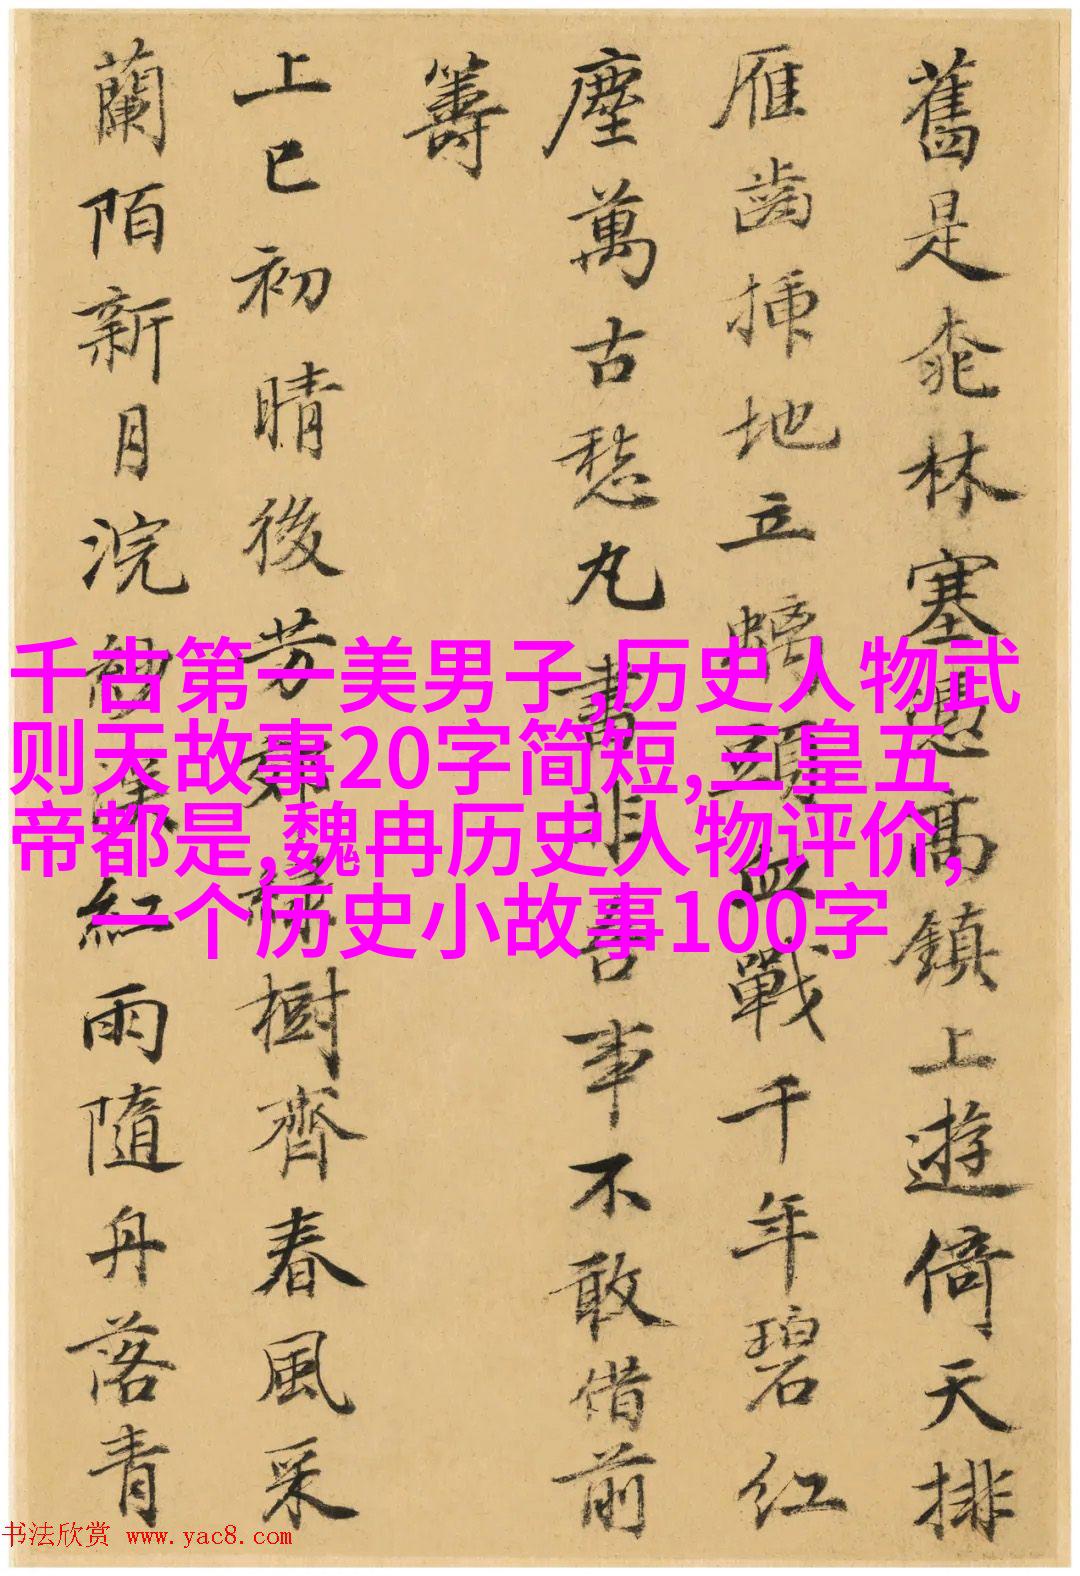 舊是桃林塞憑高鎮上遊倚天排
雁齒插地立螭頭血戰千年碧紅
塵萬古愁丸書非吾事不敢借前
籌
上巳初晴後芳郊綠樹齊春風采
蘭陌新月浣紗溪紅雨隨舟落青
千古第一美男子,历史人物武
则天故事20字简短,三皇五
帝都是,魏冉历史人物评价,
一个历史小故事100字
书法欣赏 www.yac8.com